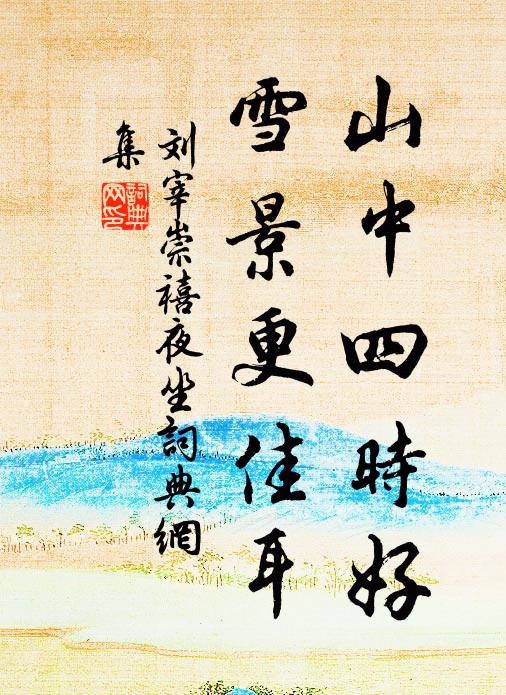 山中四時好
雪景更佳耳
刘宰崇禧夜坐詞典網
集
詞典
网印